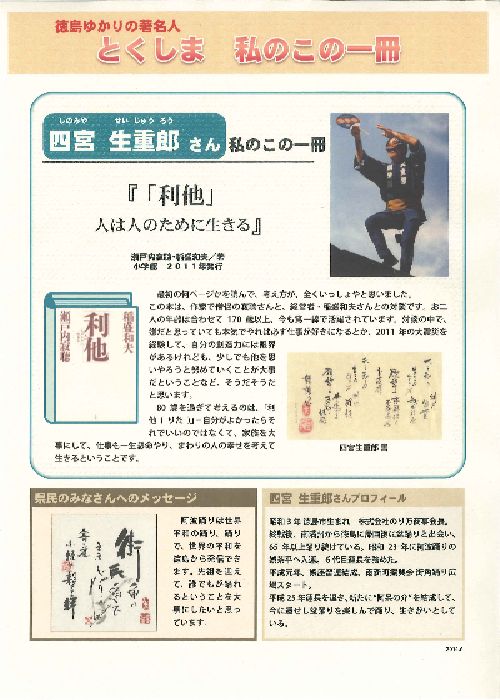 徳島ゆかりの著名人
とくしま 私のこの一冊
しのみや せい じゅう ろう
四宮 生重郎 さん 私のこの一冊
『「利他」
人は人のために生きる』
瀬戸内寂聴・稲盛和夫／著
小学館 2011年発行
最初の何ページかを読んで、考え方が、全くいっしょやと思いました。
この本は、作家で僧侶の寂聴さんと、経営者・稲盛和夫さんとの対談です。お二
人の年齢は合わせて170歳以上、今も第一線で活躍されています。対談の中で、
嫌だと思っていても本気でやれば必ず仕事が好きになるとか、2011年の大震災を
経験して、自分の創造力には限界
があるけれども、少しでも他を思
いやろうと努めていくことが大事
だということなど、そうだそうだ
と思います。
80歳を過ぎて考えるのは、「利
他」
自分がよかったらそ
れでいいのではなくて、家族を大
事にして、仕事も一生懸命やり、まわりの人の幸せを考えて
生きるということです。
稲盛和夫
利他
瀬戸内寂聴
四宮生重郎 書
県民のみなさんへのメッセージ
阿波踊りは世界
平和の踊り、踊り
で、世界の平和を
徳島から発信でき
ます。先祖を迎え
て、誰でもが踊れ
るということを大
事にしたいと思っ
ています。
四宮 生重郎さんプロフィール
昭和3年徳島市生まれ 株式会社のり万商事会長。
終戦後、
徳島に帰国後に盆踊りと出会い、
65年以上踊り続けている。昭和23年に阿波踊りの
娯茶平へ入連。6代目連長を務めた。
平成元年、
街角踊り広
場スタート。
平成25年連長を退き、新たに“阿呆の介”を結成して、
今に至
盆踊りを楽しんで踊り、生きがいとして
いる。